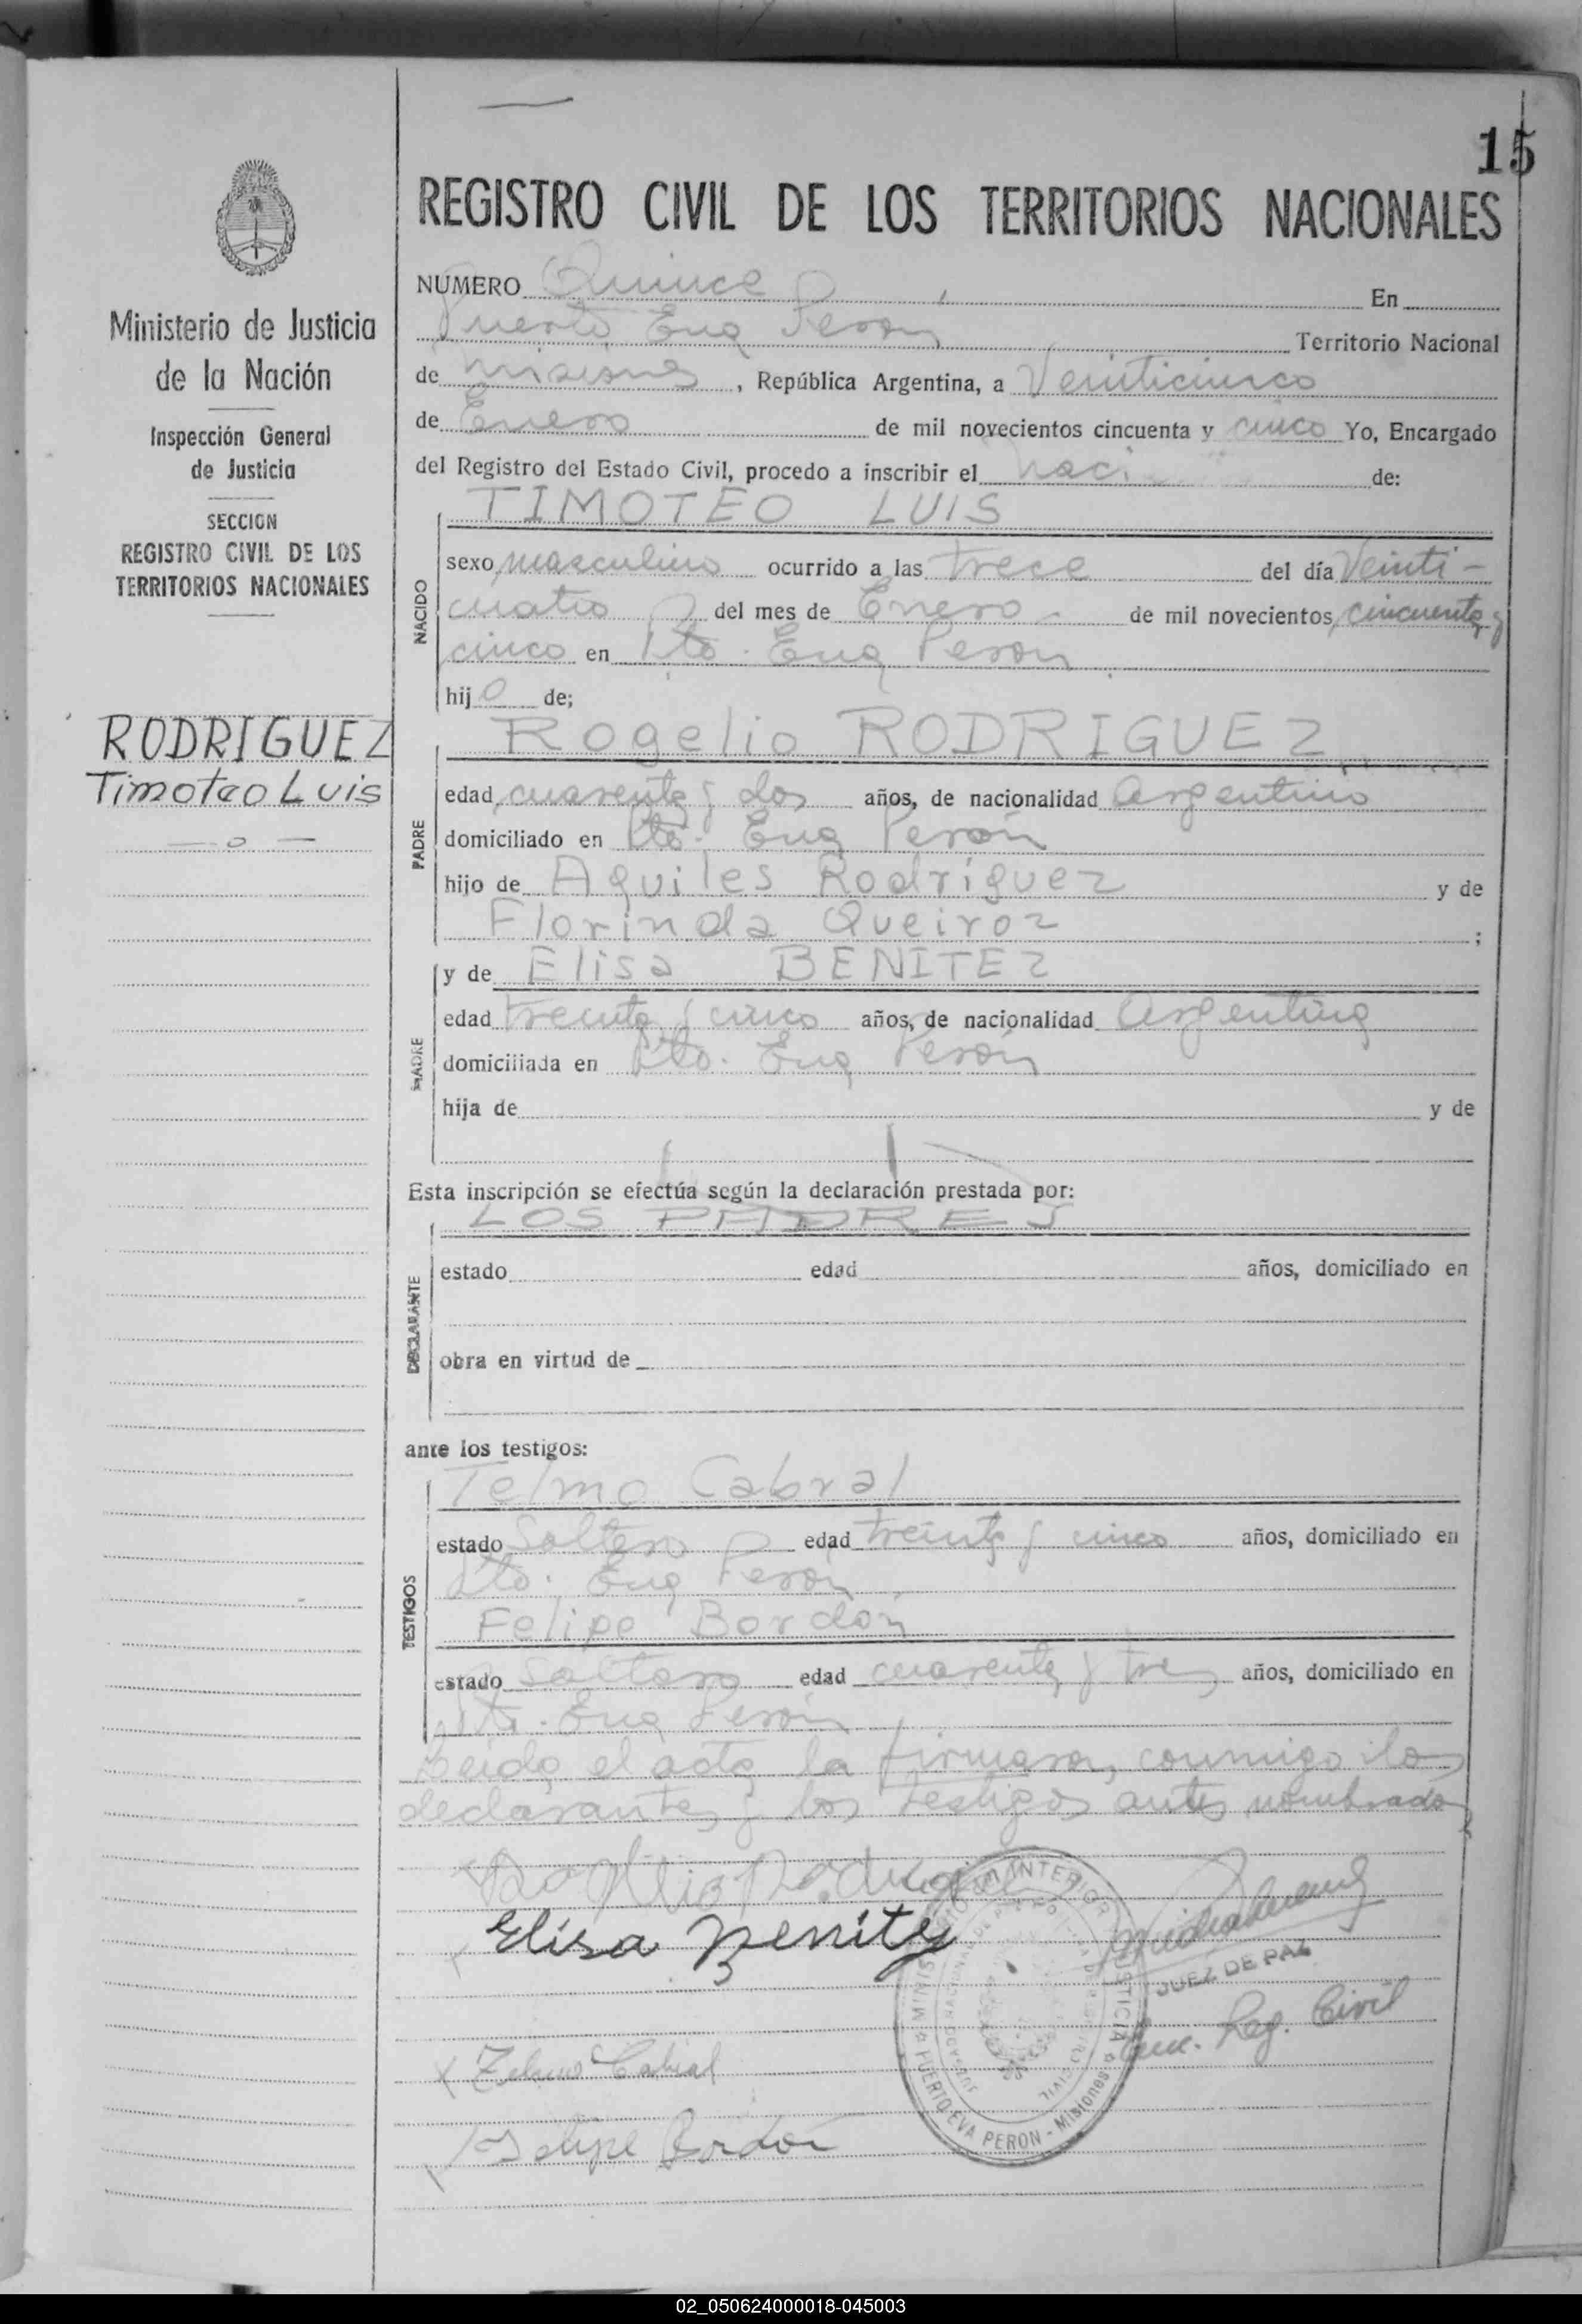 15
REGISTRO CIVIL DE LOS TERRITORIOS NACIONALES
Ministerio de Justicia
de la Nación
Inspección General
de Justicia
SECCION
REGISTRO CIVIL DE LOS
TERRITORIOS NACIONALES
RODRIGUEZ
Timoteo Luis
NUMERO Quince En
Puerto Eva Perón Territorio Nacional
de Misiones, República Argentina, a Veinticinco
de Enero de mil novecientos cincuenta y cinco Yo, Encargado
del Registro del Estado Civil, procedo a inscribir el naci de:
NACIDO
TIMOTEO LUIS
sexo masculino ocurrido a las trece del día Veinti-
cuatro del mes de Enero de mil novecientos cincuenta y
cinco en Pto. Eva Perón
hijo de;
PADRE
Rogelio RODRIGUEZ
edad cuarenta y dos años, de nacionalidad Argentino
domiciliado en Pto. Eva Perón
hijo de Aquiles Rodríguez y de
Florinda Queiroz ;
MADRE
y de Elisa BENITEZ
edad treinta y cinco años, de nacionalidad Argentina
domiciliada en Pto. Eva Perón
hija de y de
Esta inscripción se efectúa según la declaración prestada por:
DECLARANTE
LOS PADRES
estado edad años, domiciliado en
obra en virtud de
ante los testigos:
TESTIGOS
Telmo Cabral
estado Soltero edad treinta y cinco años, domiciliado en
Pto. Eva Perón
Felipe Bordón
estado Soltero edad cuarenta y tres años, domiciliado en
Pto. Eva Perón
Leída el acta la firmaron conmigo los
declarantes y los testigos antes nombrados
Rogelio Rodrigue
Elisa Benitez
JUEZ DE PAZ
Enc. Reg. Civil
Telmo Cabral
Felipe Bordon
PUERTO EVA PERON - Misiones
02_050624000018-045003